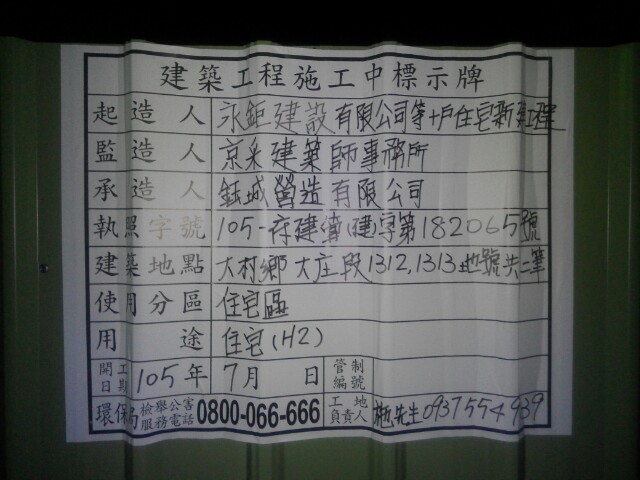 建築工程施工中標示牌
起造人 永鉅建設有限公司等十戶住宅新建工程
監造人 京采建築師事務所
承造人 鈺城營造有限公司
執照字號 105-府建管(建)字第182065號
建築地點 大村鄉大庄段1312,1313地號共二筆
使用分區 住宅區
用途 住宅(H2)
開工日期 105年7月 日 管制編號
環保局 檢舉公害服務電話 0800-066-666 工地負責人 施先生0937554939